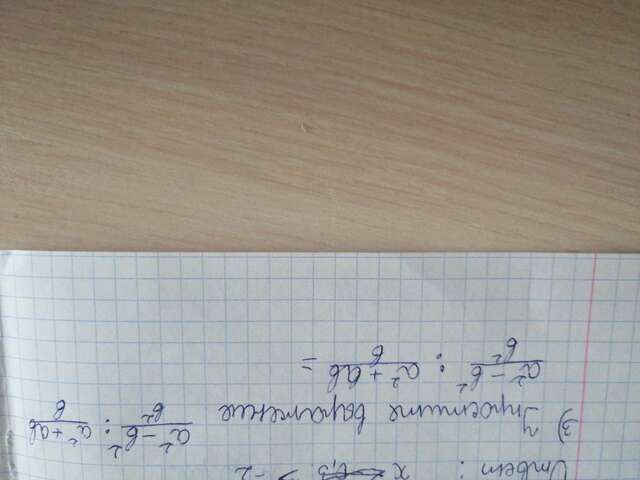 Ответ: x -2
3) Упростите выражение a² - b² / b² : a² + ab / b
a² - b² / b² : a² + ab / b =